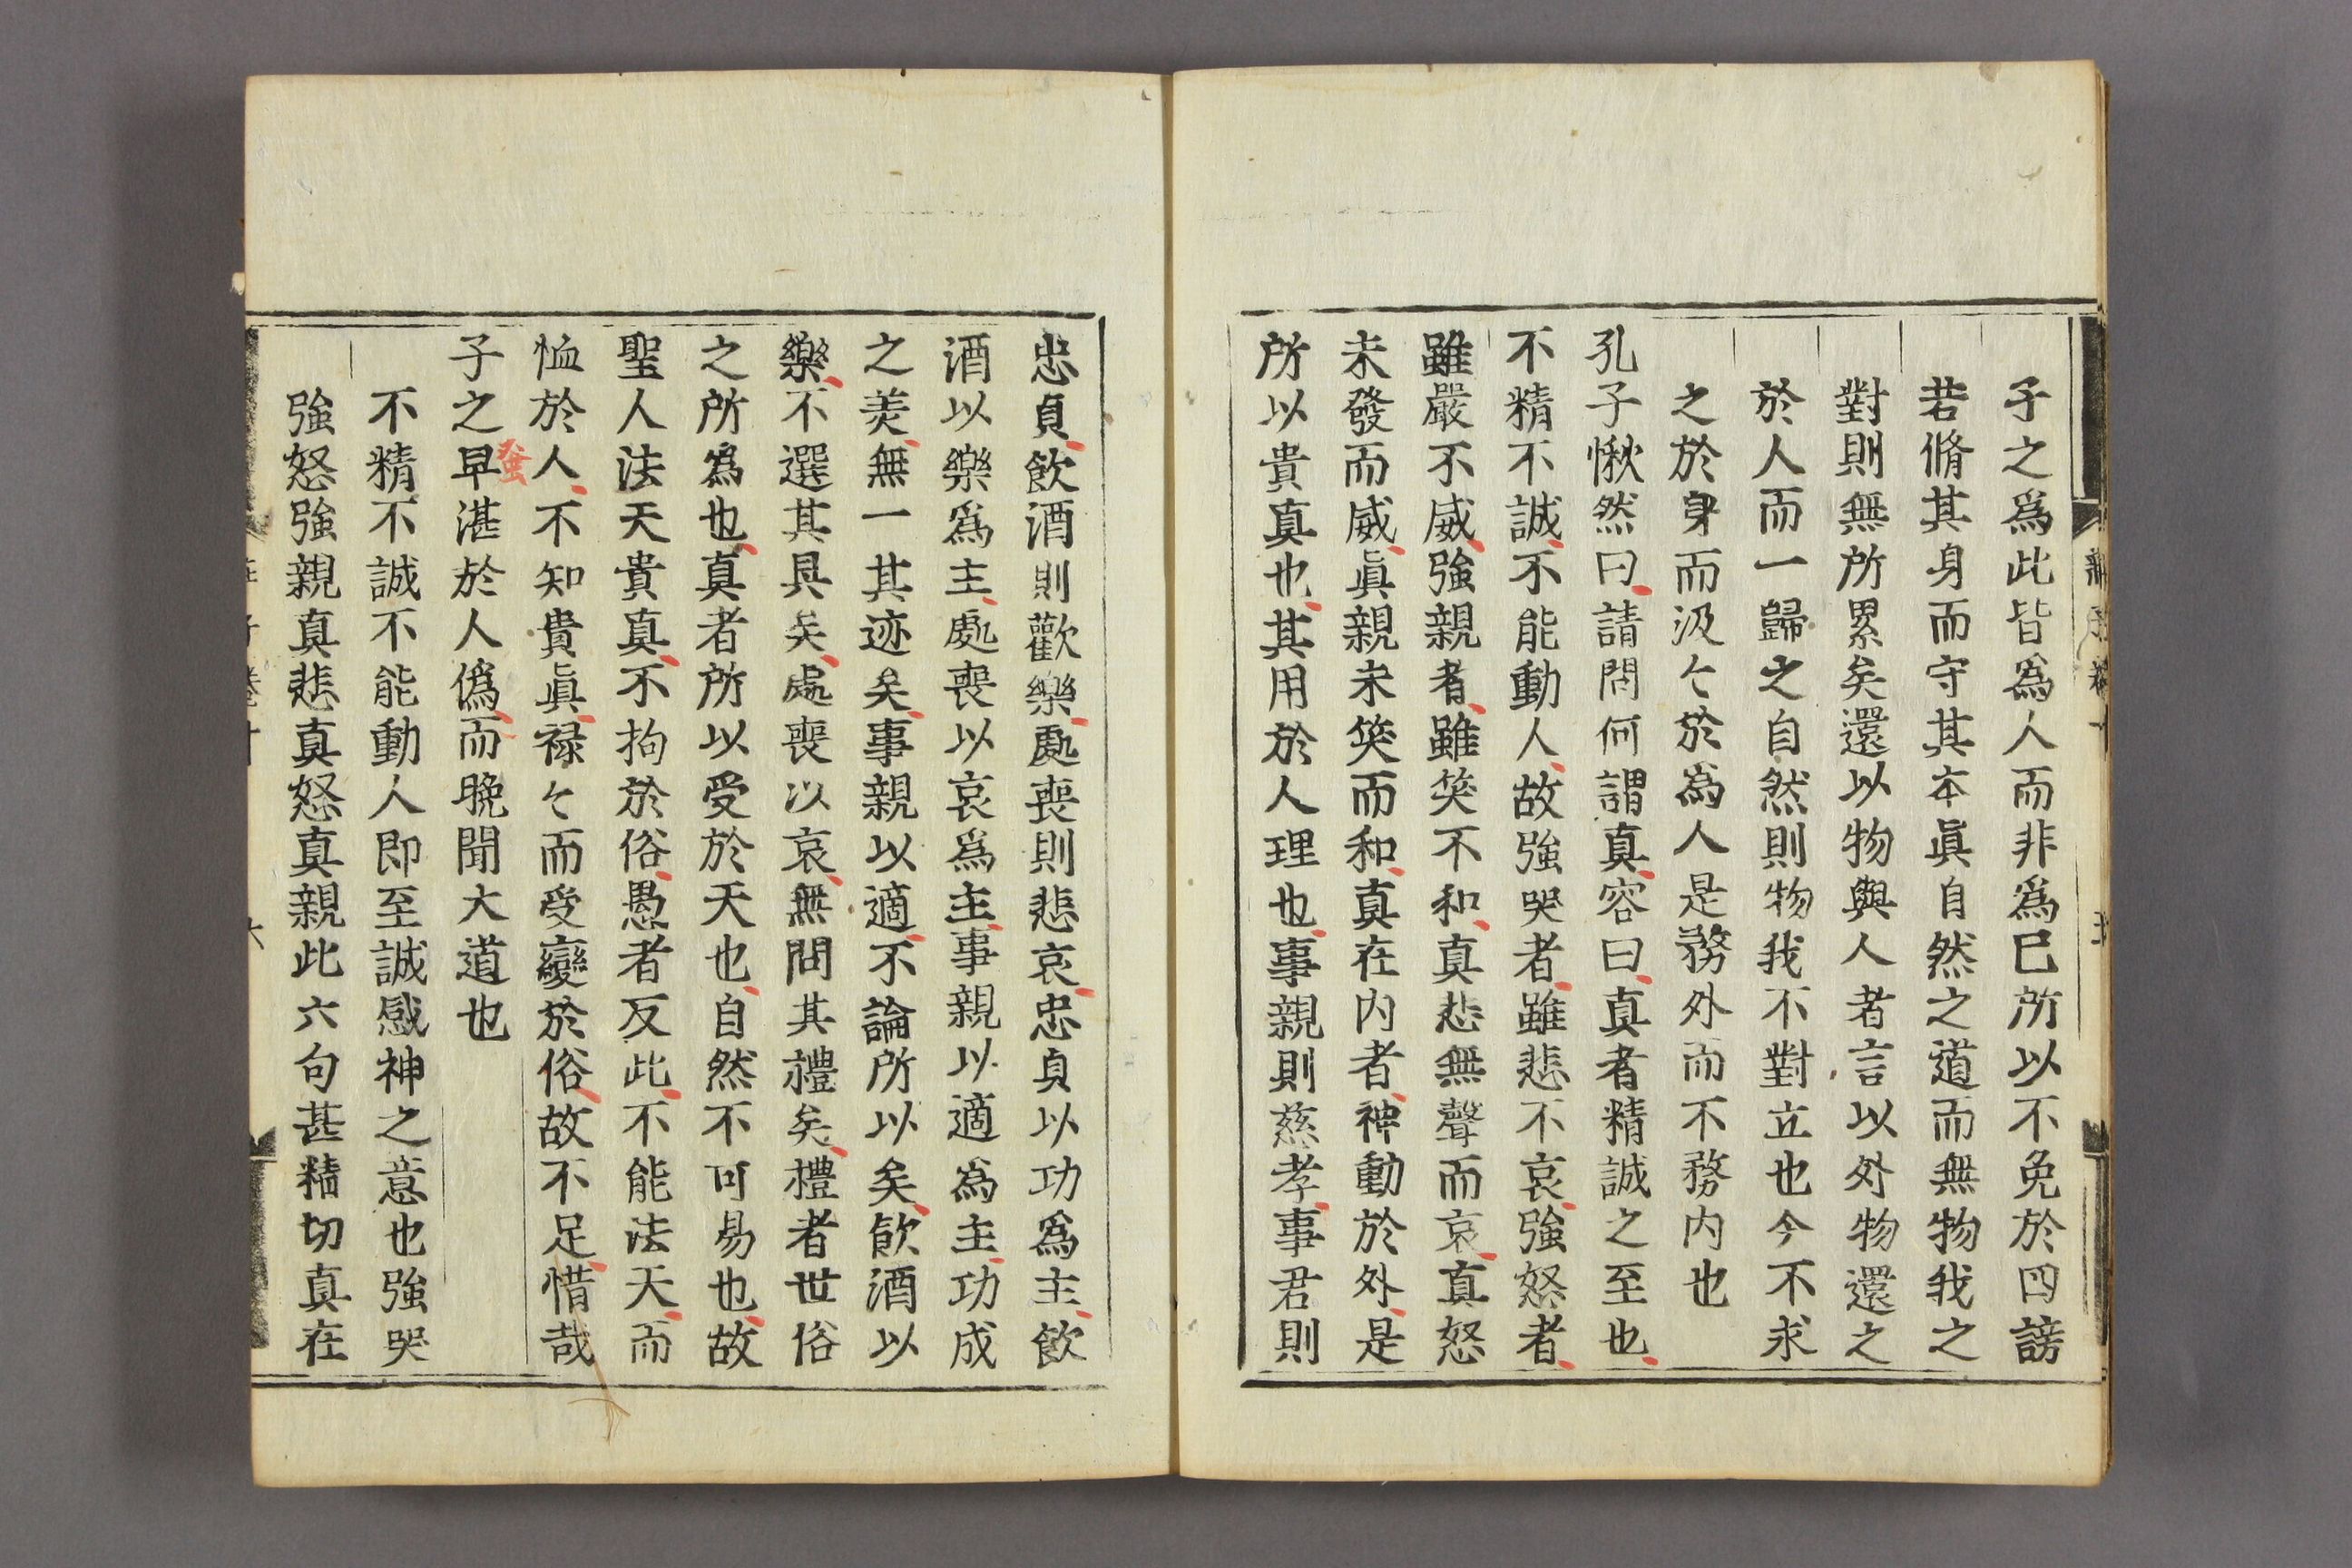 子之爲此皆爲人而非爲已所以不免於四謗
若脩其身而守其本眞自然之道而無物我之
對則無所累矣還以物與人者言以外物還之
於人而一歸之自然則物我不對立也今不求
之於身而汲々於為人是務外而不務内也
孔子愀然曰請問何謂真容曰真者精誠之至也
不精不誠不能動人故強哭者雖悲不哀強怒者
雖嚴不威強親者雖笑不和真悲無聲而哀真怒
未發而威眞親未笑而和真在内者神動於外是
所以貴真也其用於人理也事親則慈孝事君則
忠貞飲酒則歡樂處喪則悲哀忠貞以功爲主飲
酒以樂爲主處喪以哀爲主事親以適為主功成
之美無一其迹矣事親以適不論所以矣飲酒以
樂不選其具矣處喪以哀無問其禮矣禮者世俗
之所爲也真者所以受於天也自然不可易也故
聖人法天貴真不拘於俗愚者反此不能法天而
恤於人不知貴眞禄々而受變於俗故不足惜哉
蚤
子之早湛於人偽而晩聞大道也
不精不誠不能動人即至誠感神之意也強哭
強怒強親真悲真怒真親此六句甚精切真在